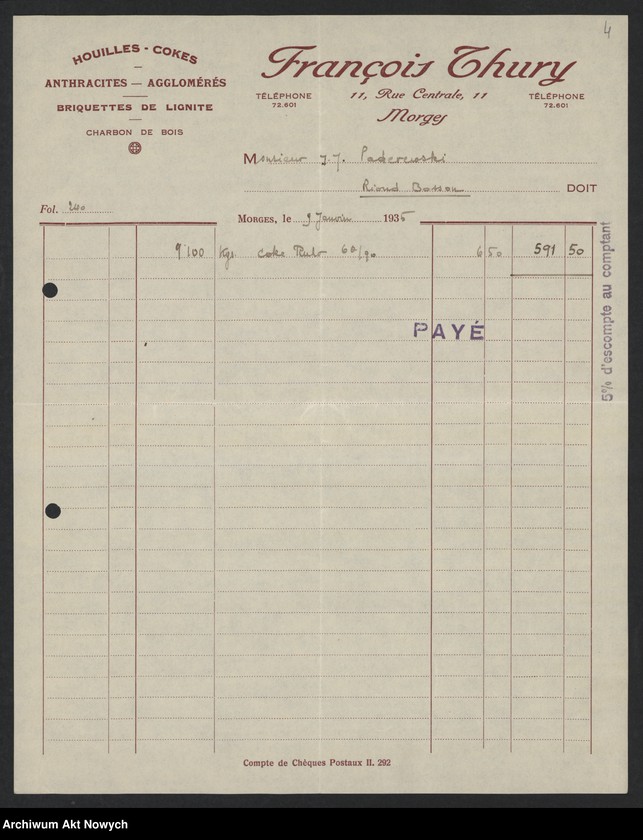 4
HOUILLES - COKES
ANTHRACITES — AGGLOMÉRÉS
BRIQUETTES DE LIGNITE
CHARBON DE BOIS
François Thury
TÉLÉPHONE
72.601
11, Rue Centrale, 11
TÉLÉPHONE
72.601
Morges
Monsieur J. J. Paderewski
Riond Bosson DOIT
Fol. 240
MORGES, le 9 Janvier 1935
9100 Kgs. coke Ruhr 60/90 6 50 591 50
PAYÉ
5% d'escompte au comptant
Compte de Chèques Postaux II. 292
Archiwum Akt Nowych